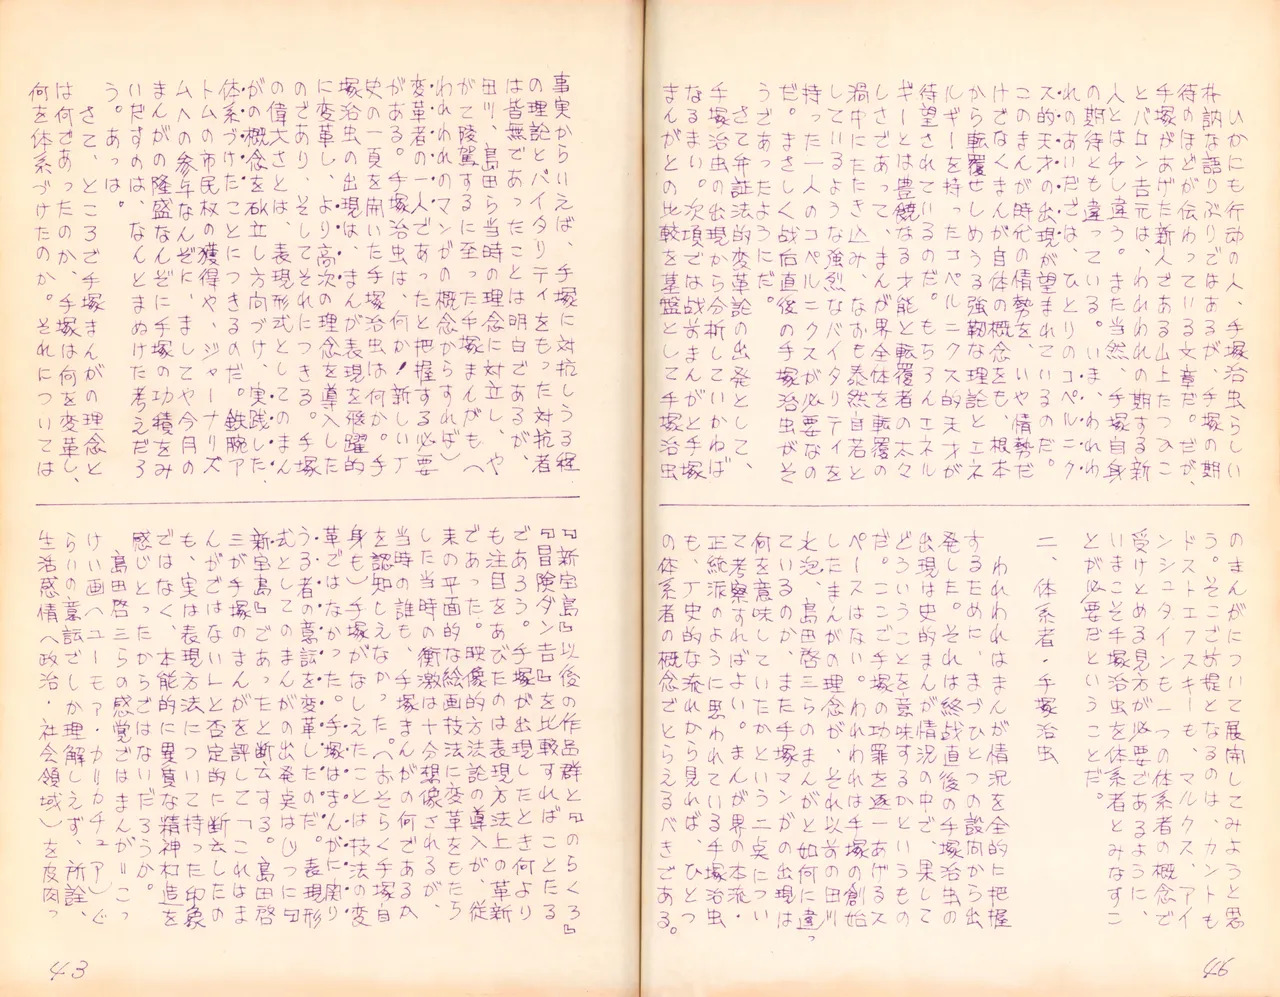 いかにも行動の人、手塚治虫らしい
朴訥な語りぶりではあるが、手塚の期
待のほどが伝わっている文章だ。だが、
手塚があげた新人である山上たつひこ
とバロン吉元は、われわれの期する新
人とは少し違う。また当然、手塚自身
の期待とも違っている。いま、われわ
れのあいだでは、ひとりのコペルニク
ス的天才の出現が望まれているのだ。
このまんが時代の情勢を、いや情勢だ
けでなくまんが自体の概念をも、根本
から転覆せしめうる強靭な理論とエネ
ルギーを持ったコペルニクス的天才が
待望されているのだ。もちろんエネル
ギーとは豊饒なる才能と転覆者の太々
しさであって、まんが界全体を転覆の
渦中にたたき込み、なおも泰然自若と
しているような強烈なバイタリティを
持った一人のコペルニクスが必要なの
だ。まさしく战后直後の手塚治虫がそ
うであったようにだ。
さて弁証法的変革論の出発として、
手塚治虫の出現から分析していかねば
なるまい。次項では战前まんがと手塚
まんがとの比較を基盤として手塚治虫
のまんがについて展開してみようと思
う。そこで前提となるのは、カントも
ドストエフスキーも、マルクス、アイ
ンシュタインも一つの体系者の概念で
受けとめる見方が必要であるように、
いまこそ手塚治虫を体系者とみなすこ
とが必要だということだ。
二、体系者・手塚治虫
われわれはまんが情況を全的に把握
するためのひとつの設問から出
発した。それは終战直後の手塚治虫の
出現は史的まんが情況の中で、果して
どういうことを意味するかというもの
だ。ここで手塚の功罪を逐一あげるス
ペースはない。われわれは手塚の創始
したまんがの理念が、それ以前の田川
水泡、島田啓三らのまんがと如何に違っ
ているのか、また手塚マンガの出現は
何を意味していたかという二点につい
て考察すればよい。まんが界の本流・
正統派のように思われている手塚治虫
も、丁史的な流れから見れば、ひとつ
の体系者の概念でとらえるべきである。
46
事実からいえば、手塚に対抗しうる程
の理論とバイタリティをもった対抗者
は皆無であったことは明白であるが、
田川、島田ら当時の理念に対立し、や
がて陵駕するに至った手塚まんがも(
われわれのマンガの概念からすれば)
変革者の一人であったと把握する必要
がある。手塚治虫は、何か!新しい丁
史の一頁を開いた手塚治虫は何か。手
塚治虫の出現は、まんが表現を飛躍的
に変革し、より高次の理念を導入した
のであり、そしてそれにつきる。手塚
の偉大さとは、表現形式としてのまん
がの概念を砿立し方向づけ、実践した、
体系づけたことにつきるのだ。鉄腕ア
トムの市民权の獲得や、ジャーナリズ
ムへの参与なんぞに、ましてや今月の
まんがの隆盛なんぞに手塚の功積をみ
いだすのは、なんとまぬけた考えだろ
う。あっは。
さて、ところで手塚まんがの理念と
は何であったのか、手塚は何を変革し、
何を体系づけたのか。それについては
『新宝島』以後の作品群と『のらくろ』
『冒険ダン吉』を比較すればことたる
であろう。手塚が出現したとき何より
も注目をあびたのは表現方法上の革新
であった。映像的方法論の導入が、従
来の平面的な絵画技法に変革をもたら
した当時の衝激は十分想像されるが、
当時の誰も、手塚まんがの何であるか
を認知しえなかった。(おそらく手塚自
身も)手塚がなしえたことは技法の変
革ではなかった。手塚はまんがに関り
うる者の意誌を変革したのだ。表現形
式としてのまんがの出発点はじつに『
新宝島』であったと断云する。島田啓
三が手塚のまんがを評して「これはま
んがではない」と否定的に断去したの
も、実は表現方法について持った印象
ではなく、本能的に異質な精神构造を
感じとったからではないだろうか。
島田啓三らの感覚ではまんが=こっ
けい画(ユーモア・カリカチュア)ぐ
らいの意誌でしか理解しえず、所詮、
生活感情へ政治・社会領域)を皮肉っ
43